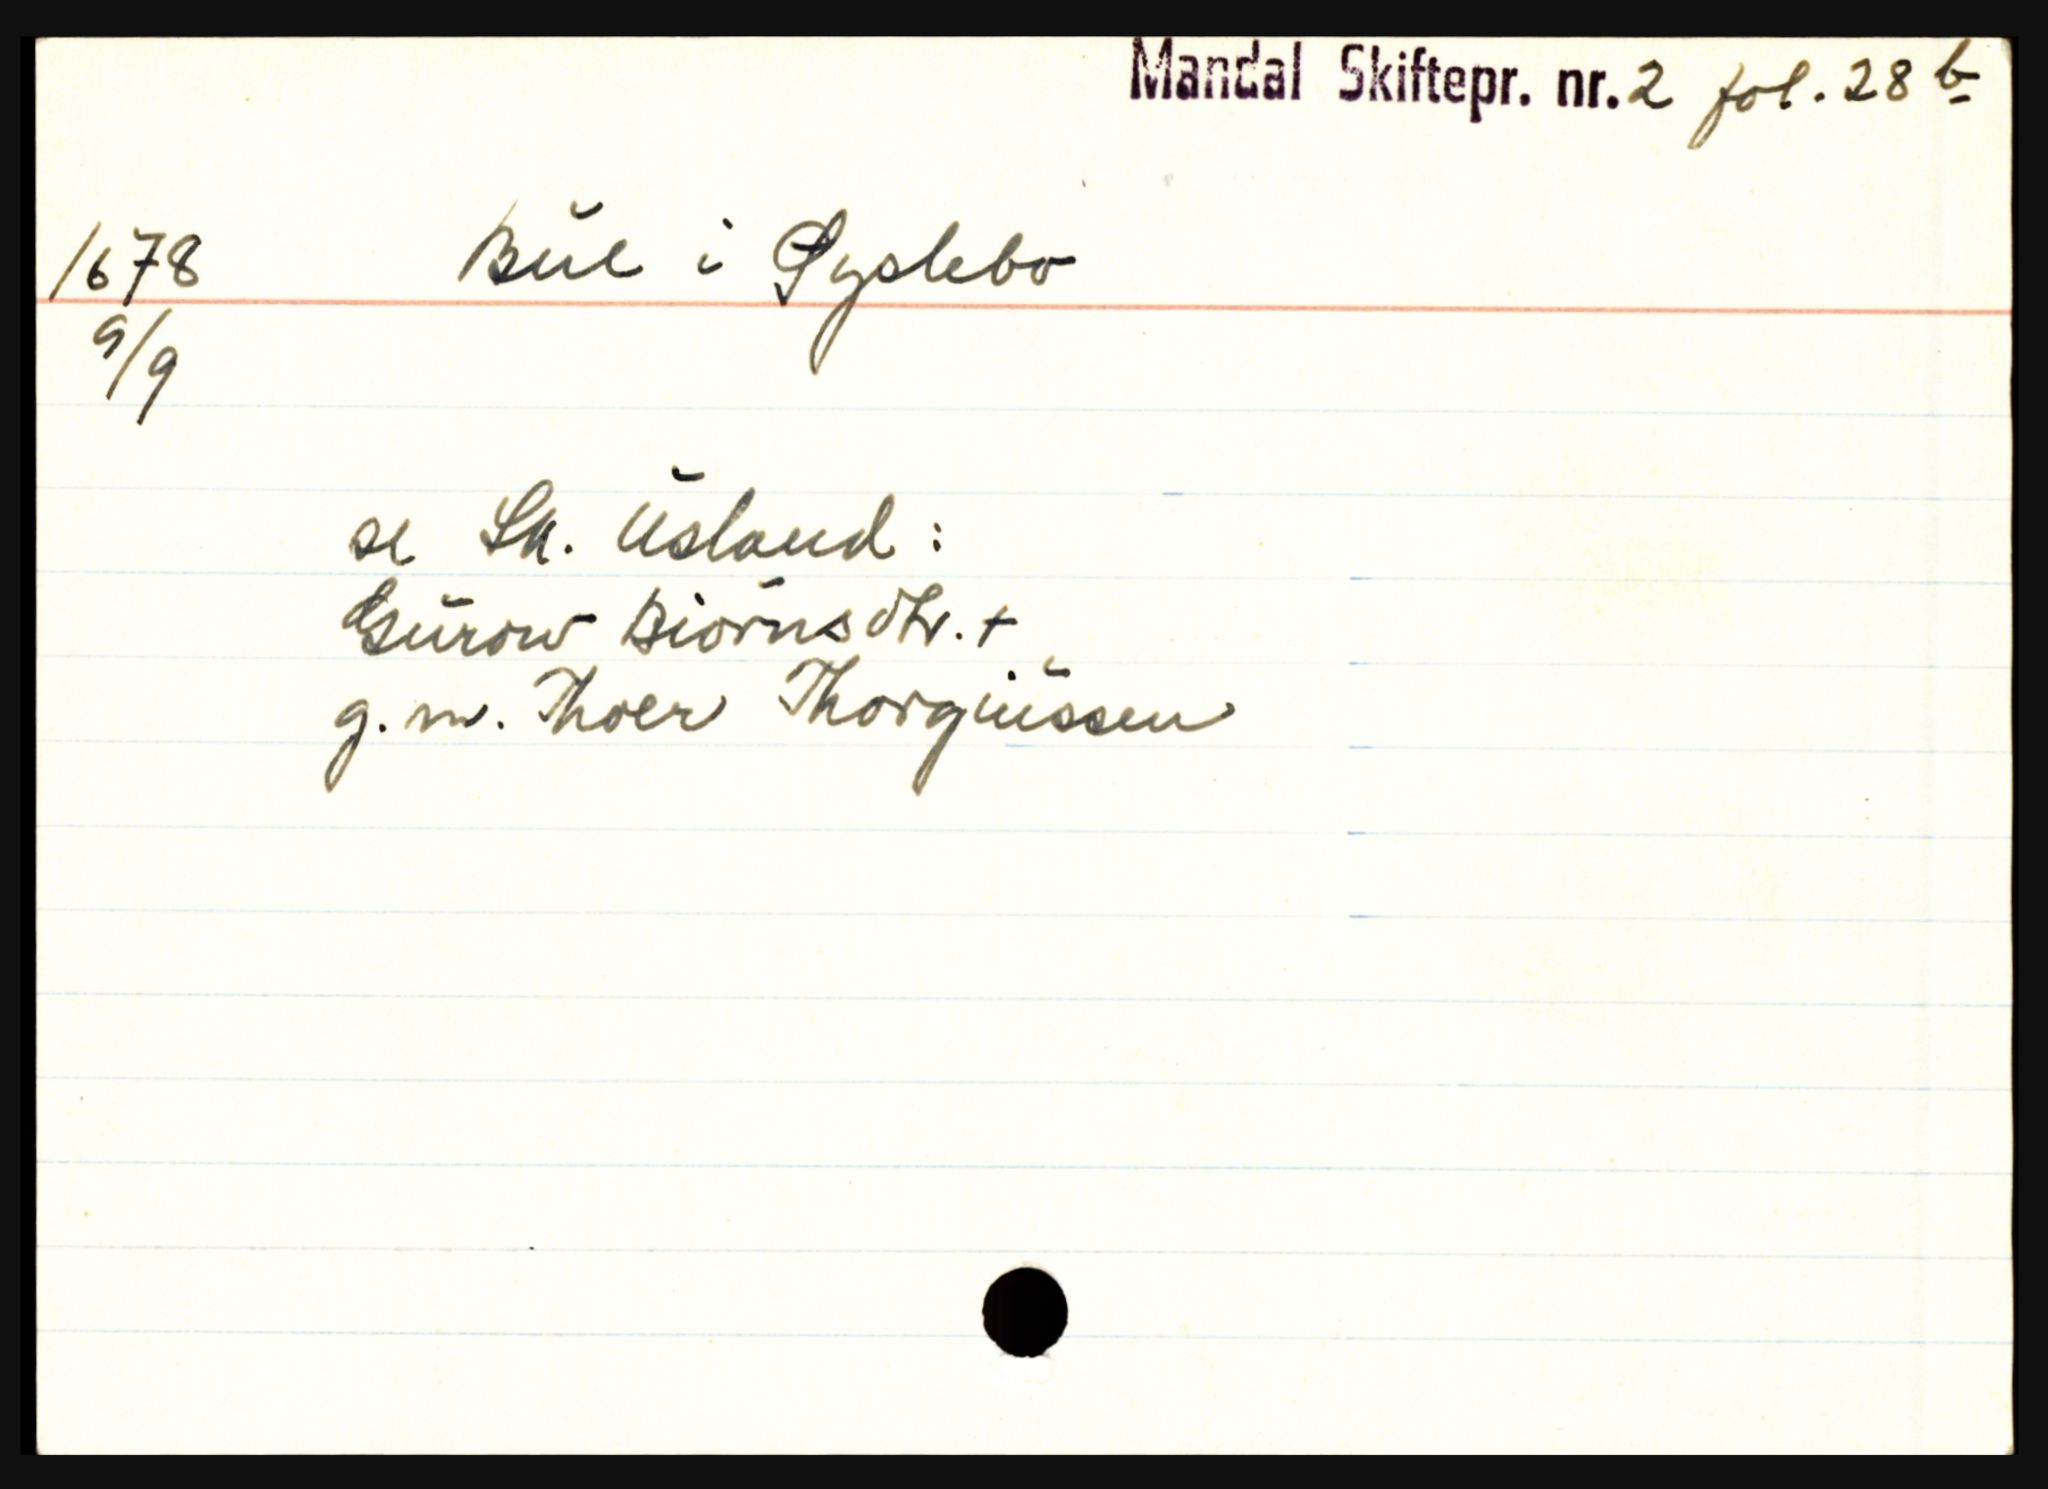 Mandal Skiftepr. nr. 2 fol. 28 b
1678 Bue i Øyslebo
9/9
se Sk. Usland :
Gurow Biørnsdtr. +
g. m. Thoer Thorgiussen